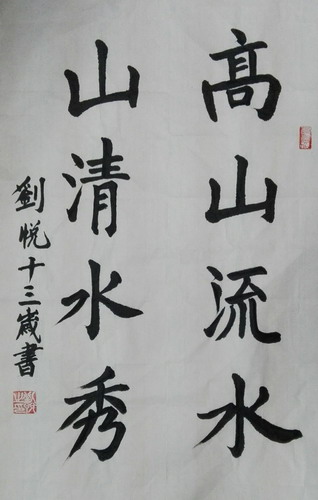 高山流水
山清水秀
劉悦十三歲書